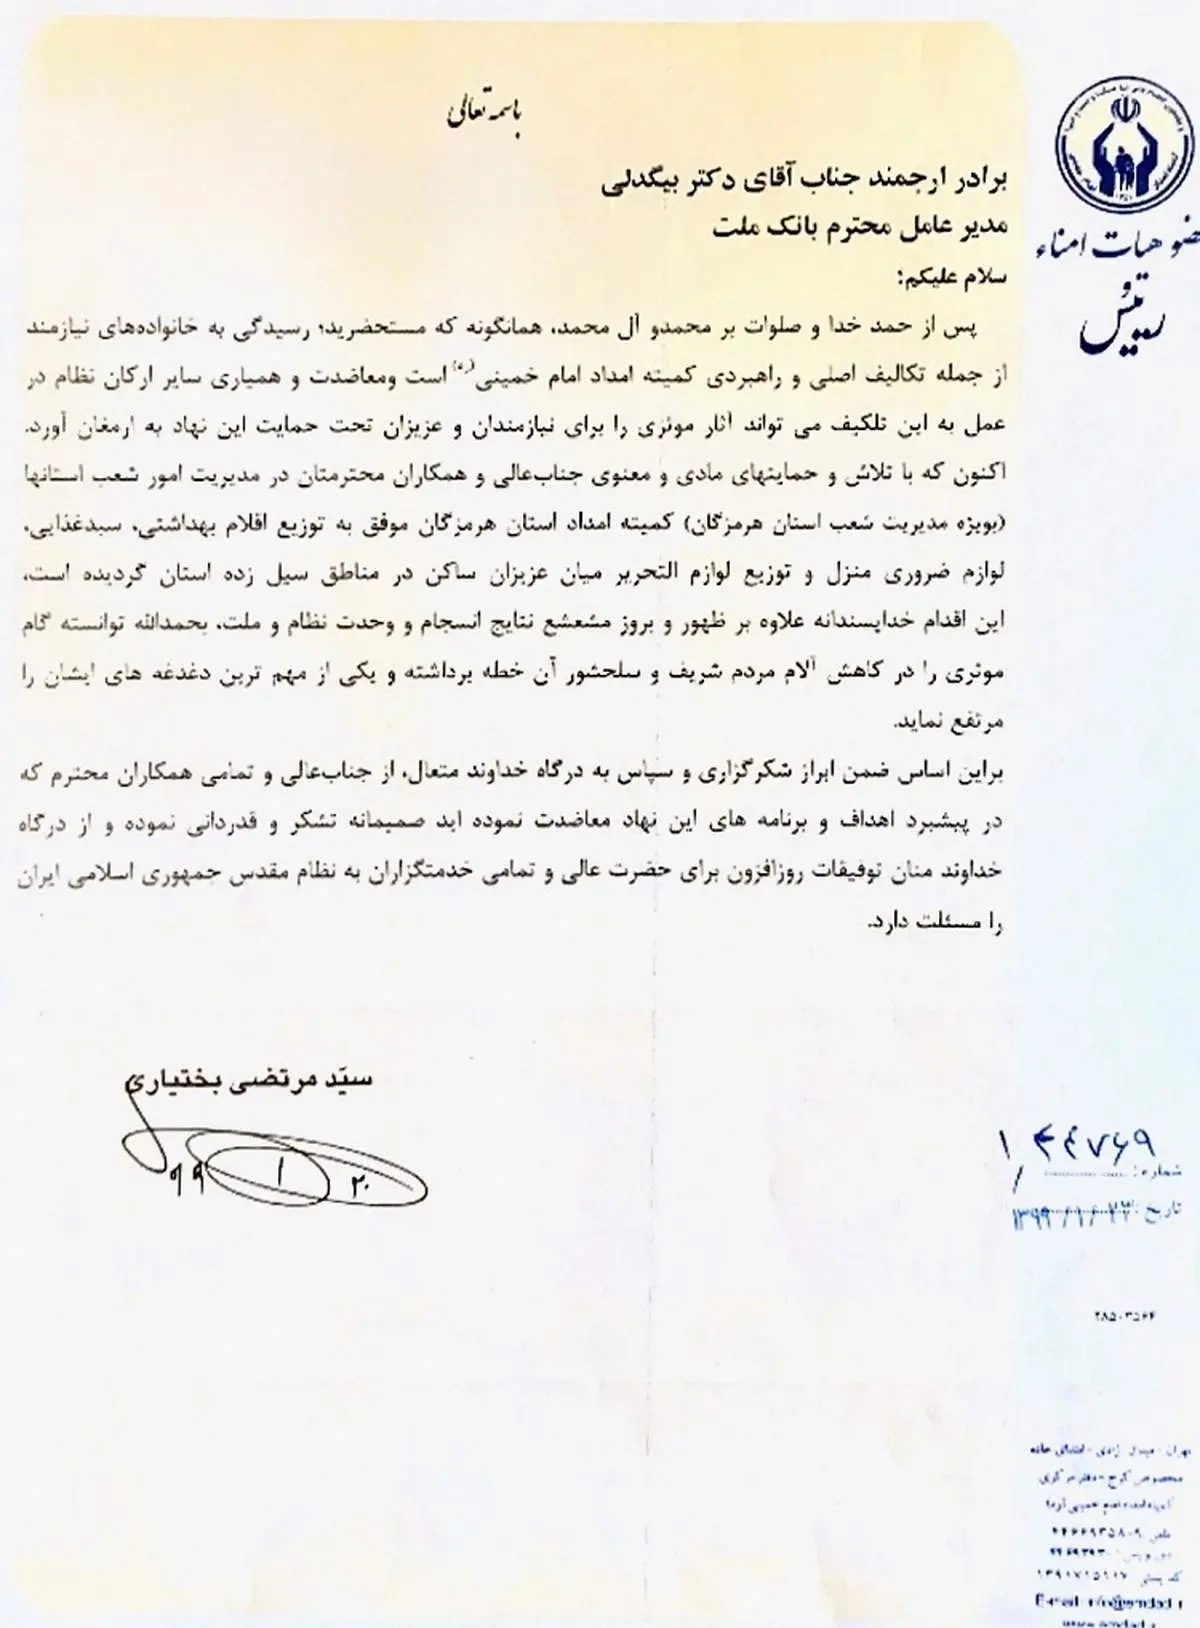 باسمه تعالی
برادر ارجمند جناب آقای دکتر بیگدلی
مدیر عامل محترم بانک ملت
سلام علیکم؛
پس از حمد خدا و صلوات بر محمدو آل محمد، همانگونه که مستحضرید؛ رسیدگی به خانواده‌های نیازمند
از جمله تکالیف اصلی و راهبردی کمیته امداد امام خمینی(ره) است ومعاضدت و همیاری سایر ارکان نظام در
عمل به این تلکیف می تواند آثار موثری را برای نیازمندان و عزیزان تحت حمایت این نهاد به ارمغان آورد.
اکنون که با تلاش و حمایتهای مادی و معنوی جناب‌عالی و همکاران محترمتان در مدیریت امور شعب استانها
(بویژه مدیریت شعب استان هرمزگان) کمیته امداد استان هرمزگان موفق به توزیع اقلام بهداشتی، سبدغذایی،
لوازم ضروری منزل و توزیع لوازم التحریر میان عزیزان ساکن در مناطق سیل زده استان گردیده است،
این اقدام خداپسندانه علاوه بر ظهور و بروز مشعشع نتایج انسجام و وحدت نظام و ملت، بحمدالله توانسته گام
موثری را در کاهش آلام مردم شریف و سلحشور آن خطه برداشته و یکی از مهم ترین دغدغه های ایشان را
مرتفع نماید.
براین اساس ضمن ابراز شکرگزاری و سپاس به درگاه خداوند متعال، از جناب‌عالی و تمامی همکاران محترم که
در پیشبرد اهداف و برنامه های این نهاد معاضدت نموده اید صمیمانه تشکر و قدردانی نموده و از درگاه
خداوند منان توفیقات روزافزون برای حضرت عالی و تمامی خدمتگزاران به نظام مقدس جمهوری اسلامی ایران
را مسئلت دارد.
سیّد مرتضی بختیاری
۹۹ ۱ ۲۰
ضو هیات امناء
و
رئیس
شماره:
تاریخ: ۱۳۹۹/۱/۲۳
۲۸۵۰۳۵۶۴
مخصوص کرج - دفتر مرکزی
تلفن
کد پستی